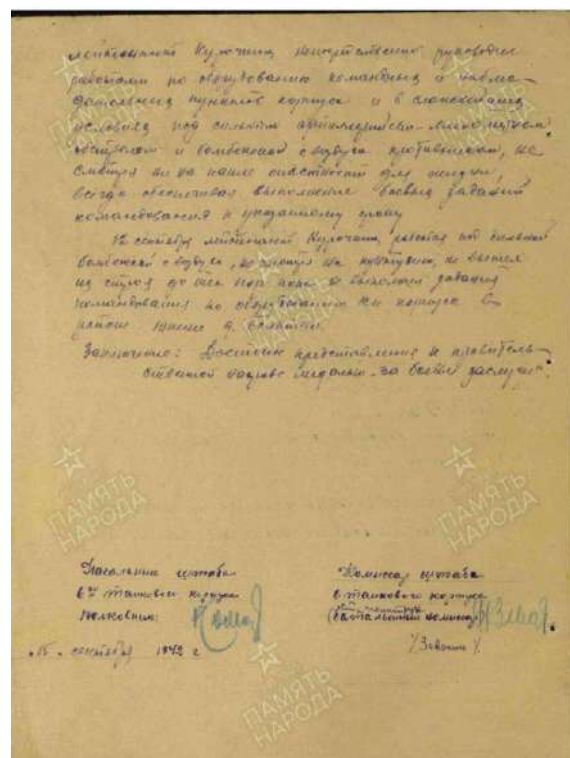 лейтенант Курочкин непосредственно руководил
работами по оборудованию командных и наблю-
дательных пунктов корпуса и в сложнейших
условиях под сильным артиллерийско-минометном
обстрелом и бомбежкой с воздуха противником, не
смотря ни на какие опасности для жизни,
всегда обеспечивал выполнение боевых заданий
командования к указанному сроку
12 сентября лейтенант Курочкин, работая под сильной
бомбежкой с воздуха, не смотря на контузию, не вышел
из строя до тех пор пока не выполнил задания
командования по оборудованию КП корпуса в
районе д.
Заключение: Достоин представления к правитель-
ственной награде медалью "За боевые заслуги".
ПАМЯТЬ НАРОДА
ПАМЯТЬ НАРОДА
Начальник штаба
6го танкового корпуса
полковник:
Комиссар штаба
6 танкового корпуса
батальонный комиссар
"15" сентября 1942 г
ПАМЯТЬ НАРОДА